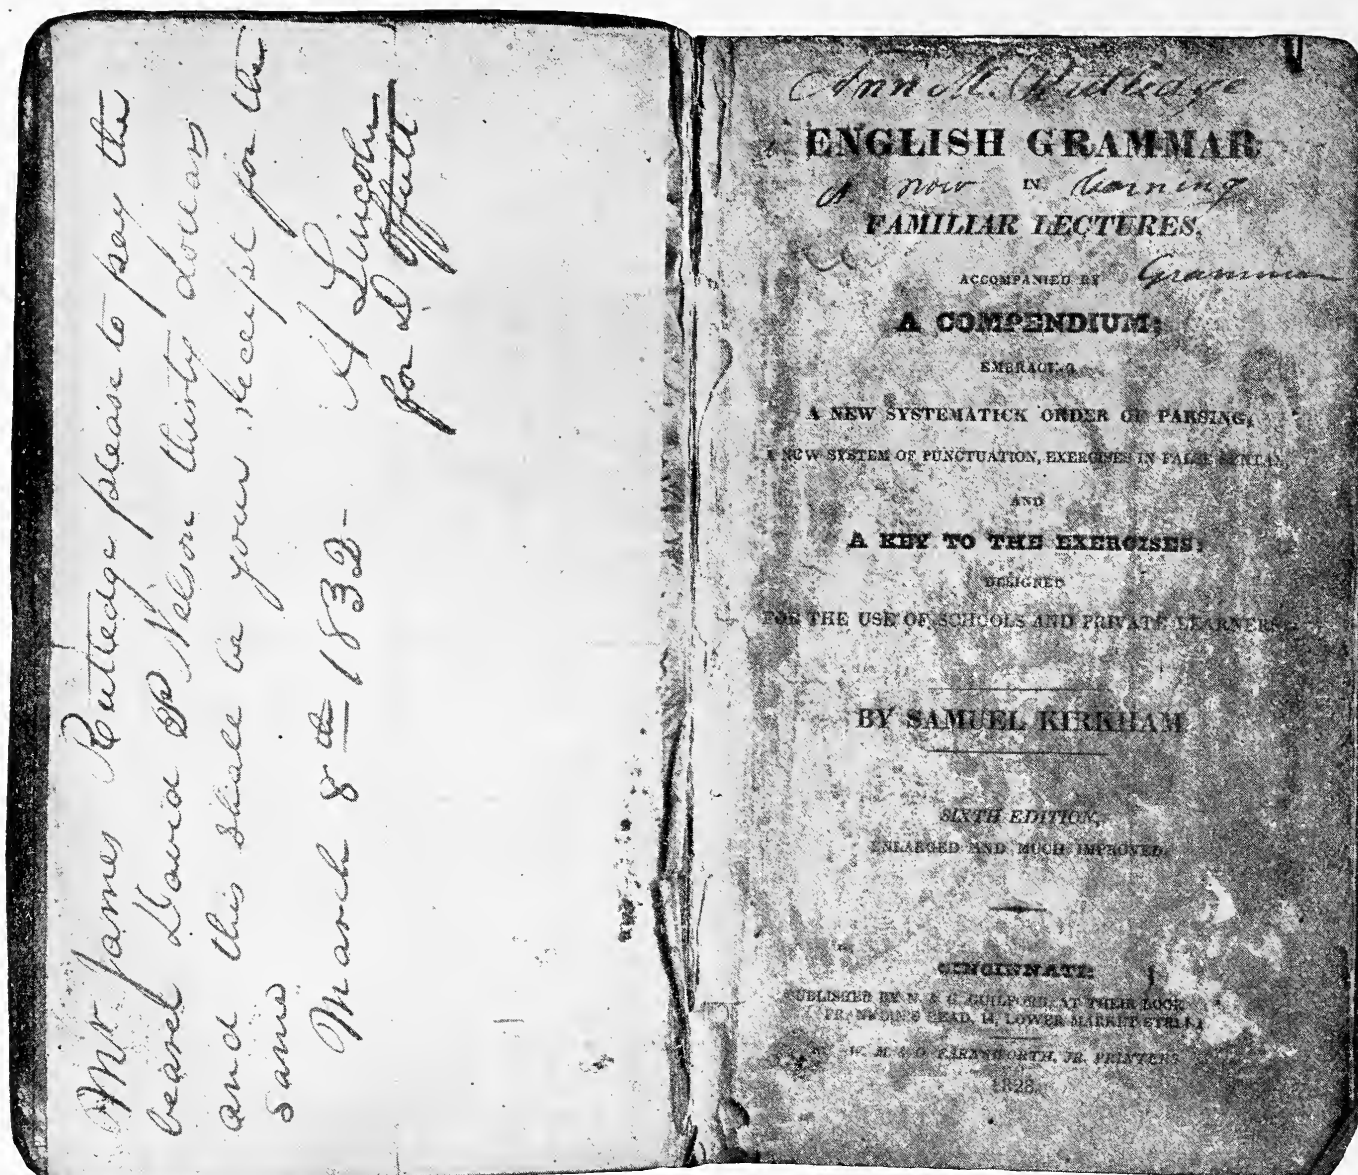 Mr James Rutledge please to pay the
bearer David P Nelson thirty dollars
and this shall be your receipt for the
same
March 8th 1832-
A Lincoln
for D Offutt
Ann M. Rutledge
ENGLISH GRAMMAR
is now IN learning
FAMILIAR LECTURES,
ACCOMPANIED BY
Grammar
A COMPENDIUM;
A NEW SYSTEMATICK ORDER OF PARSING,
A NEW SYSTEM OF PUNCTUATION, EXERCISES IN FALSE SYNTAX,
AND
A KEY TO THE EXERCISES:
DESIGNED
FOR THE USE OF SCHOOLS AND PRIVATE LEARNERS.
BY SAMUEL KIRKHAM
SIXTH EDITION,
ENLARGED AND MUCH IMPROVED.
CINCINNATI:
PUBLISHED BY N. & G. GUILFORD, AT THEIR BOOK
FRANKLIN'S HEAD, 14, LOWER MARKET STREET
W. M. & O. FARNSWORTH, JR. PRINTERS
1828.